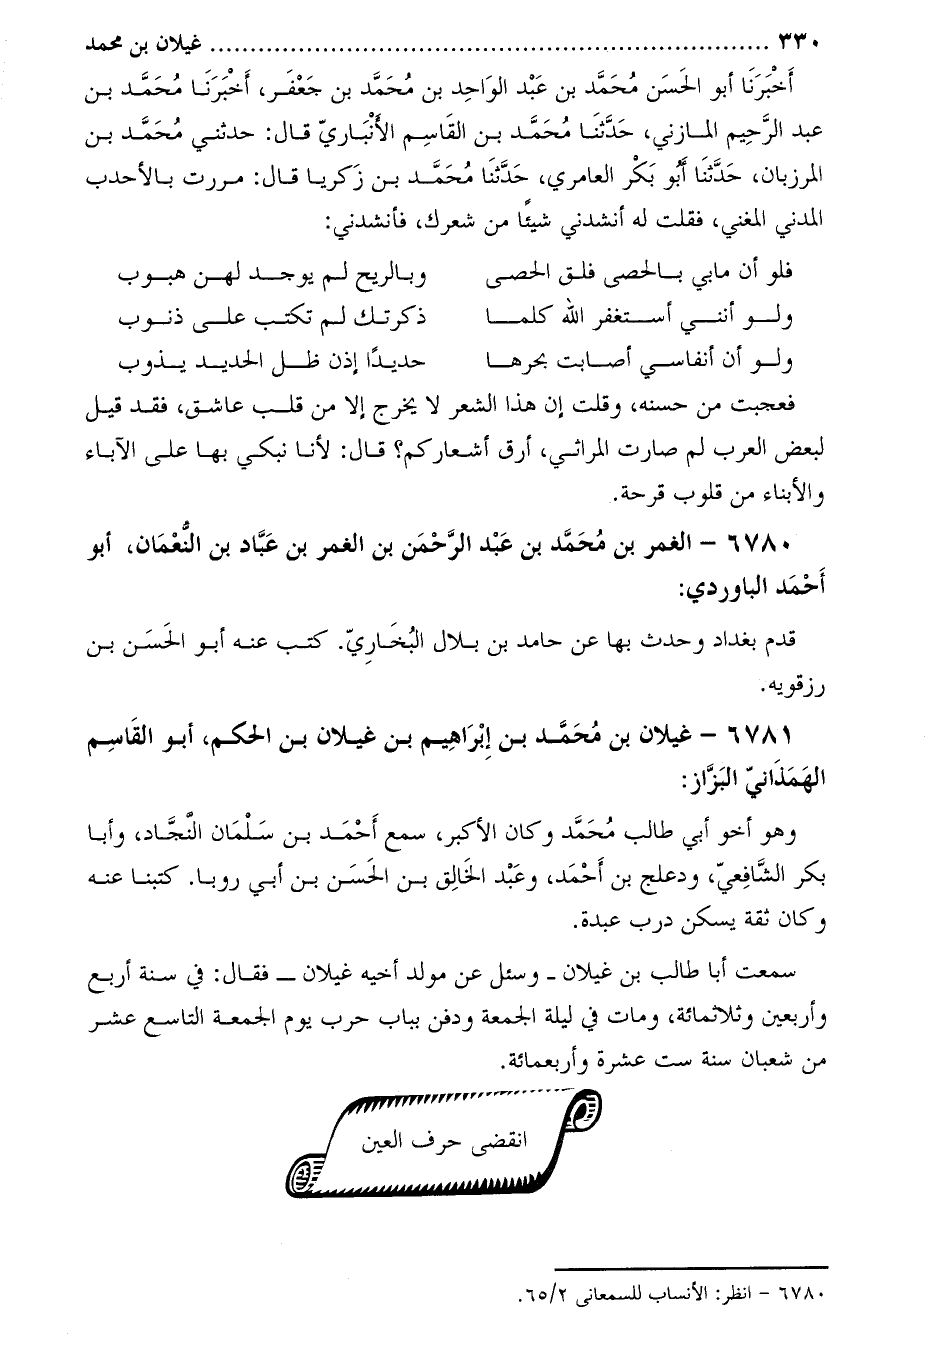 ٣٣٠ ........................................................................ غيلان بن محمد
أَخْبَرَنَا أبو الحَسَن مُحَمَّد بن عَبْد الوَاحِد بن مُحَمَّد بن جَعْفَر، أَخْبَرَنَا مُحَمَّد بن
عبد الرَّحِيم المازني، حَدَّثَنَا مُحَمَّد بن القَاسِم الأَنْبَاريّ قال: حدثني مُحَمَّد بن
المرزبان، حَدَّثَنَا أَبُو بَكْر العامري، حَدَّثَنَا مُحَمَّد بن زكريا قال: مررت بالأحدب
المدني المغني، فقلت له أنشدني شيئًا من شعرك، فأنشدني:
فلو أن مابي بالحصى فلق الحصى وبالريح لم يوجد لهن هبوب
ولو أنني أستغفر الله كلما ذكرتك لم تكتب على ذنوب
ولو أن أنفاسي أصابت بحرها حديدًا إذن ظل الحديد يذوب
فعجبت من حسنه، وقلت إن هذا الشعر لا يخرج إلا من قلب عاشق، فقد قيل
لبعض العرب لم صارت المراثي، أرق أشعاركم؟ قال: لأنا نبكي بها على الآباء
والأبناء من قلوب قرحة.
٦٧٨٠ – الغمر بن مُحَمَّد بن عَبْد الرَّحْمَن بن الغمر بن عَبَّاد بن النُّعْمَان، أبو
أَحْمَد الباوردي:
قدم بغداد وحدث بها عن حامد بن بلال البُخَاريّ. كتب عنه أبو الحَسَن بن
رزقويه.
٦٧٨١ – غيلان بن مُحَمَّد بن إِبْرَاهِيم بن غيلان بن الحكم، أبو القَاسِم
الهَمَذَانيّ البَزَّاز:
وهو أخو أبي طالب مُحَمَّد وكان الأكبر، سمع أَحْمَد بن سَلْمَان النَّجَّاد، وأبا
بكر الشَّافِعيّ، ودعلج بن أَحْمَد، وعَبْد الخَالِق بن الحَسَن بن أبي روبا. كتبنا عنه
وكان ثقة يسكن درب عبدة.
سمعت أبا طالب بن غيلان - وسئل عن مولد أخيه غيلان – فقال: في سنة أربع
وأربعين وثلاثمائة، ومات في ليلة الجمعة ودفن بباب حرب يوم الجمعة التاسع عشر
من شعبان سنة ست عشرة وأربعمائة.
انقضى حرف العين
٦٧٨٠ – انظر: الأنساب للسمعانى ٦٥/٢.